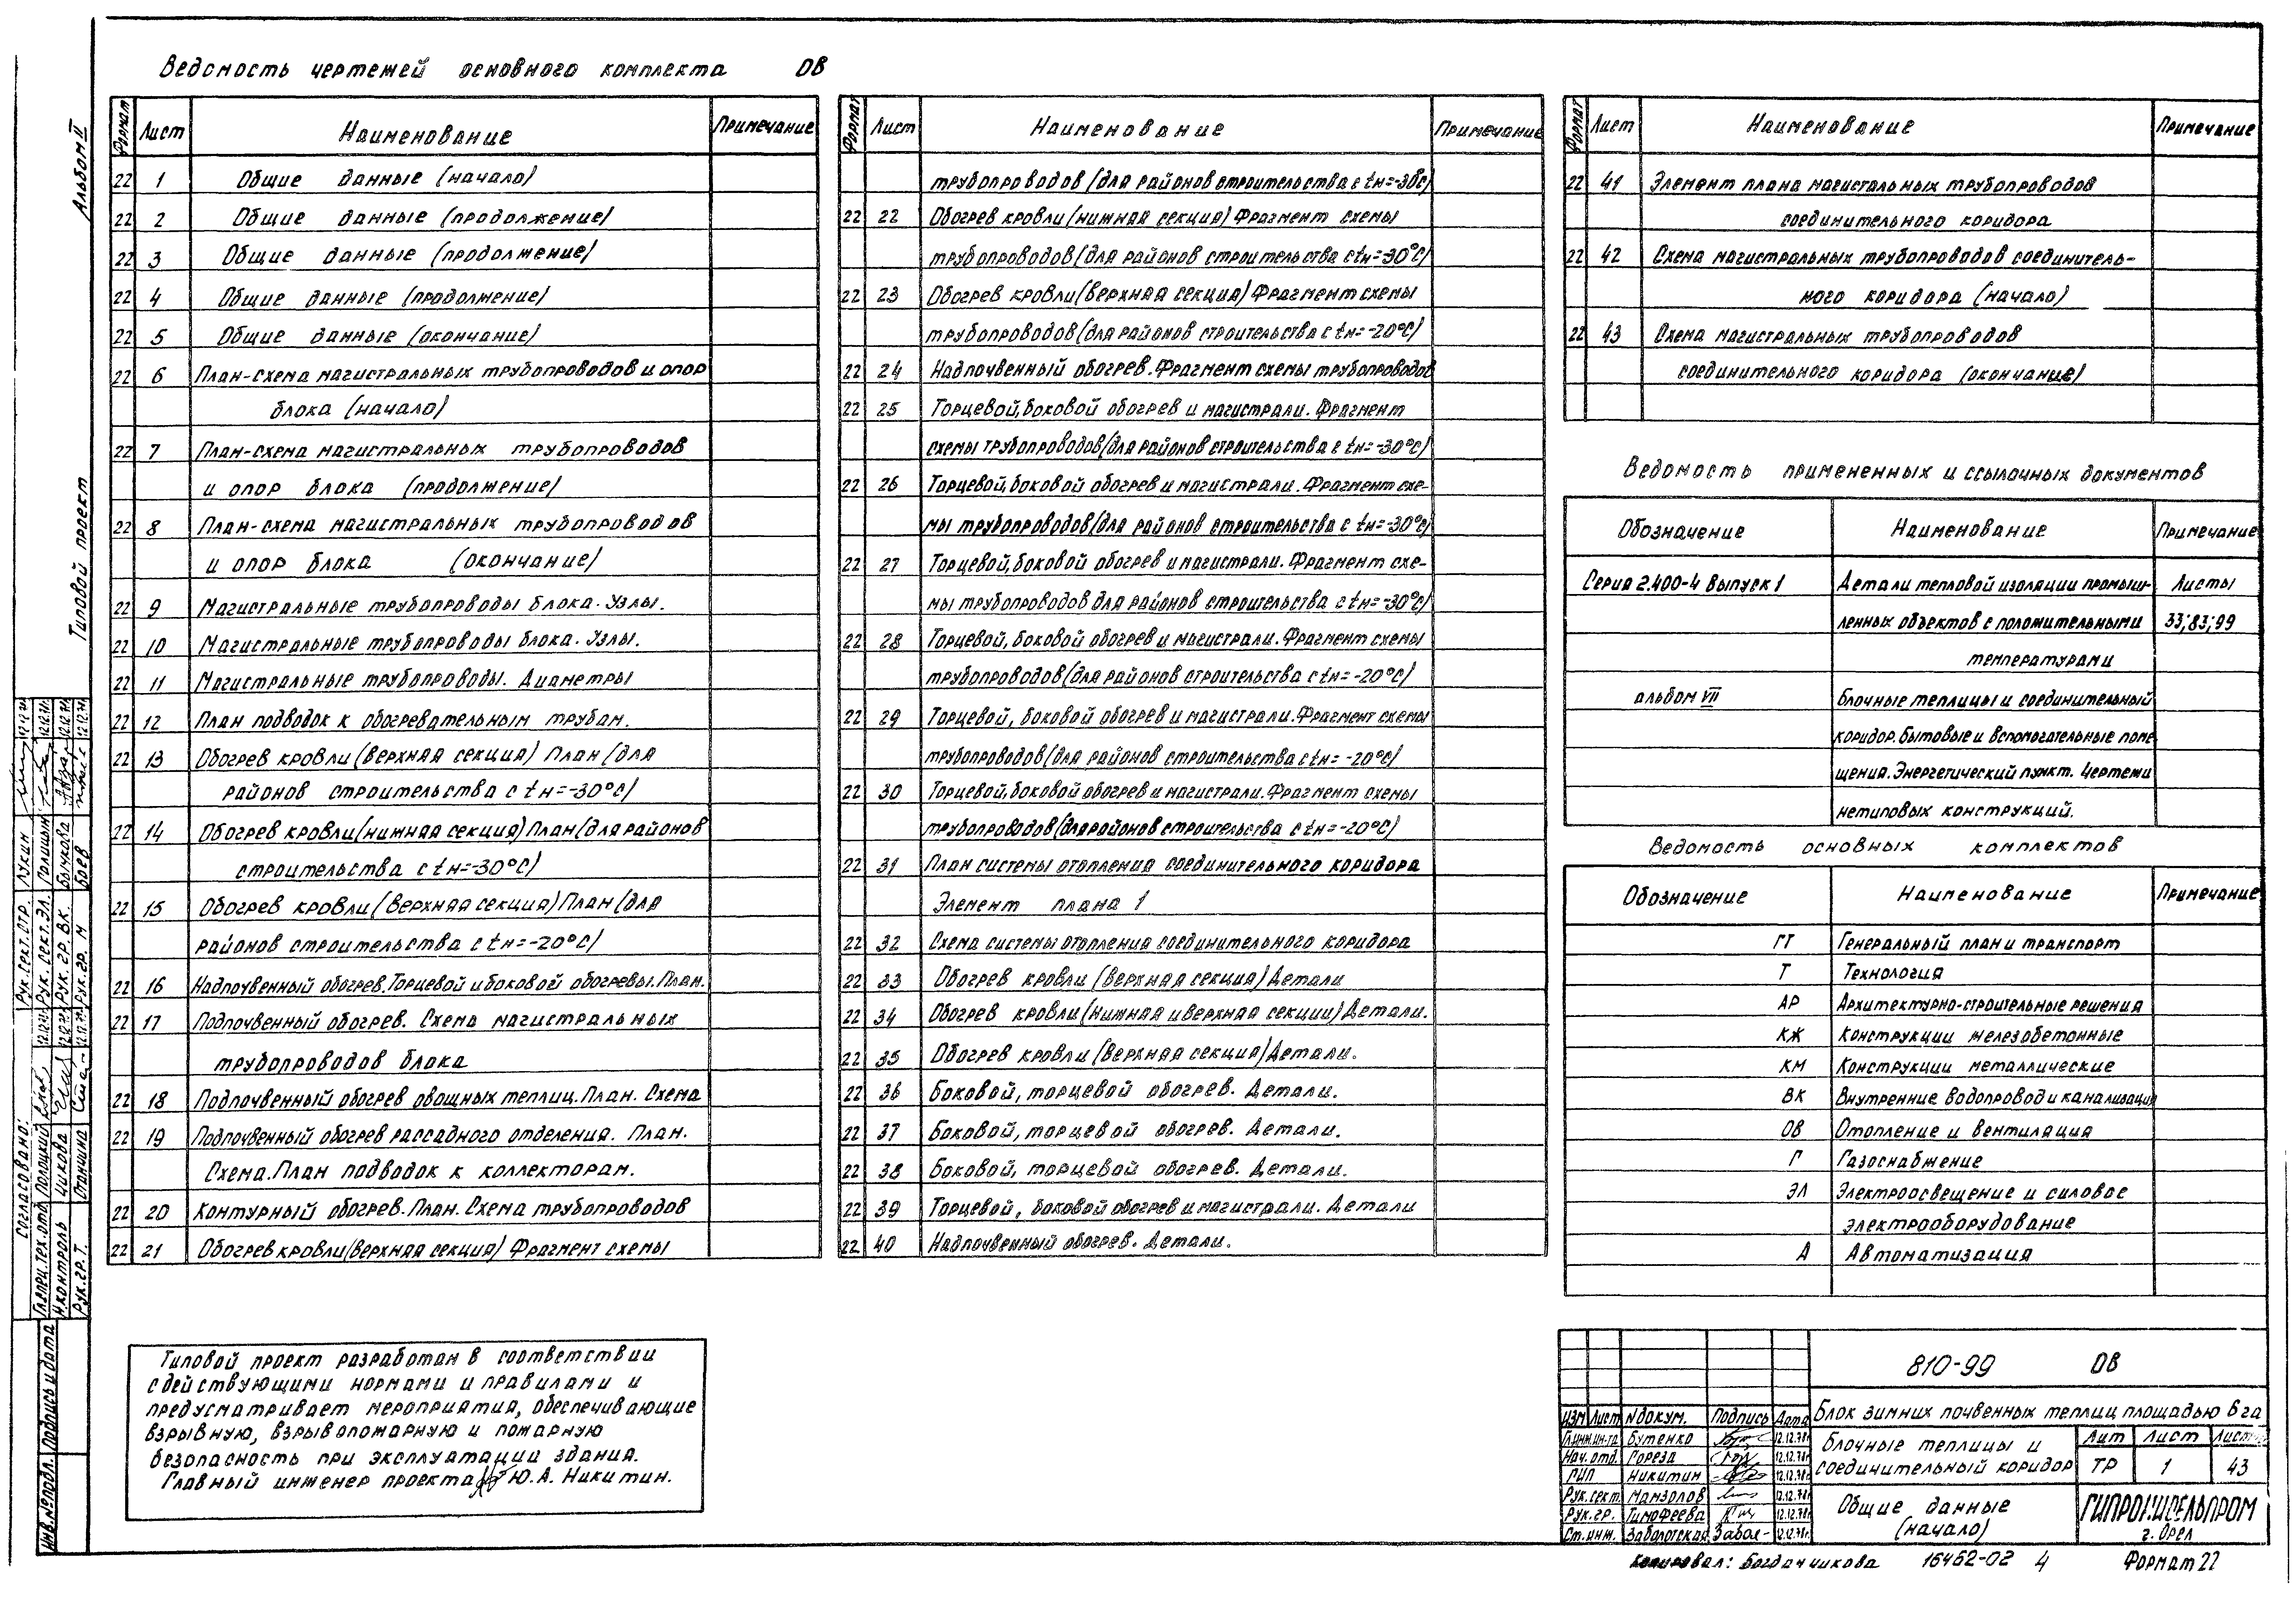 Ведомость чертежей основного комплекта ОВ
Формат Лист Наименование Примечание
22 1 Общие данные (начало)
22 2 Общие данные (продолжение)
22 3 Общие данные (продолжение)
22 4 Общие данные (продолжение)
22 5 Общие данные (окончание)
22 6 План-схема магистральных трубопроводов и опор
блока (начало)
22 7 План-схема магистральных трубопроводов
и опор блока (продолжение)
22 8 План-схема магистральных трубопроводов
и опор блока (окончание)
22 9 Магистральные трубопроводы блока. Узлы.
22 10 Магистральные трубопроводы блока. Узлы.
22 11 Магистральные трубопроводы. Диаметры
22 12 План подводок к обогревательным трубам.
22 13 Обогрев кровли (верхняя секция) План (для
районов строительства с tн=-30°С)
22 14 Обогрев кровли (нижняя секция) План (для районов
строительства с tн=-30°С)
22 15 Обогрев кровли (верхняя секция) План (для
районов строительства с tн=-20°С)
22 16 Надпочвенный обогрев. Торцевой и боковой обогревы. План.
22 17 Подпочвенный обогрев. Схема магистральных
трубопроводов блока
22 18 Подпочвенный обогрев овощных теплиц. План. Схема
22 19 Подпочвенный обогрев рассадного отделения. План.
Схема. План подводок к коллекторам.
22 20 Контурный обогрев. План. Схема трубопроводов
22 21 Обогрев кровли (верхняя секция) Фрагмент схемы
Формат Лист Наименование Примечание
трубопроводов (для районов строительства с tн=-30°С)
22 22 Обогрев кровли (нижняя секция) Фрагмент схемы
трубопроводов (для районов строительства с tн=-30°С)
22 23 Обогрев кровли (верхняя секция) Фрагмент схемы
трубопроводов (для районов строительства с tн=-20°С)
22 24 Надпочвенный обогрев. Фрагмент схемы трубопроводов
22 25 Торцевой, боковой обогрев и магистрали. Фрагмент
схемы трубопроводов (для районов строительства с tн=-30°С)
22 26 Торцевой, боковой обогрев и магистрали. Фрагмент схе-
мы трубопроводов (для районов строительства с tн=-30°С)
22 27 Торцевой, боковой обогрев и магистрали. Фрагмент схе-
мы трубопроводов для районов строительства с tн=-30°С)
22 28 Торцевой, боковой обогрев и магистрали. Фрагмент схемы
трубопроводов (для районов строительства с tн=-20°С)
22 29 Торцевой, боковой обогрев и магистрали. Фрагмент схемы
трубопроводов (для районов строительства с tн=-20°С)
22 30 Торцевой, боковой обогрев и магистрали. Фрагмент схемы
трубопроводов (для районов строительства с tн=-20°С)
22 31 План системы отопления соединительного коридора
Элемент плана 1
22 32 Схема системы отопления соединительного коридора
22 33 Обогрев кровли (верхняя секция) Детали
22 34 Обогрев кровли (нижняя и верхняя секции) Детали.
22 35 Обогрев кровли (верхняя секция) Детали.
22 36 Боковой, торцевой обогрев. Детали.
22 37 Боковой, торцевой обогрев. Детали.
22 38 Боковой, торцевой обогрев. Детали.
22 39 Торцевой, боковой обогрев и магистрали. Детали
22 40 Надпочвенный обогрев. Детали.
Формат Лист Наименование Примечание
22 41 Элемент плана магистральных трубопроводов
соединительного коридора
22 42 Схема магистральных трубопроводов соединитель-
ного коридора (начало)
22 43 Схема магистральных трубопроводов
соединительного коридора (окончание)
Ведомость примененных и ссылочных документов
Обозначение Наименование Примечание
Серия 2.400-4 Выпуск 1 Детали тепловой изоляции промыш- Листы
ленных объектов с положительными 33; 83; 99
температурами
альбом VII Блочные теплицы и соединительный
коридор. Бытовые и вспомогательные поме
щения. Энергетический пункт. Чертежи
нетиповых конструкций.
Ведомость основных комплектов
Обозначение Наименование Примечание
ГТ Генеральный план и транспорт
Т Технология
АР Архитектурно-строительные решения
КЖ Конструкции железобетонные
КМ Конструкции металлические
ВК Внутренние водопровод и канализация
ОВ Отопление и вентиляция
Г Газоснабжение
ЭЛ Электроосвещение и силовое
электрооборудование
А Автоматизация
Типовой проект разработан в соответствии
с действующими нормами и правилами и
предусматривает мероприятия, обеспечивающие
взрывную, взрывопожарную и пожарную
безопасность при эксплуатации здания.
Главный инженер проекта Ю.А. Никитин.
810-99 ОВ
Блок зимних почвенных теплиц площадью 6 га
Изм Лист N докум. Подпись Дата
Гл.инж.ин-та Бутенко 12.12.78г
Нач. отд. Гореза 12.12.78г
ГИП Никитин 12.12.78г
Рук.сект. Мамзолов 12.12.78г
Рук.гр. Тимофеева 12.12.78г
Ст.инж. Заболотская 12.12.78г
Блочные теплицы и
соединительный коридор
Лит Лист Листов
ТР 1 43
Общие данные
(начало)
ГИПРОНИСЕЛЬПРОМ
г. Орел
Копировал: Богданчикова 16462-02 4 Формат 22
Альбом II
Типовой проект
Согласовано:
Рук. сект. стр. Лукин
Гл.спец.тех.отд. Полоцкий 12.12.78 Рук. сект. эл. Голицын 12.12.78
Н.контроль Цикова 12.12.78 Рук. гр. В.К. Бычкова 12.12.78
Рук.гр.т. Станчина 12.12.78 Рук. гр. М Боев 12.12.78
Инв.№подл. Подпись и дата